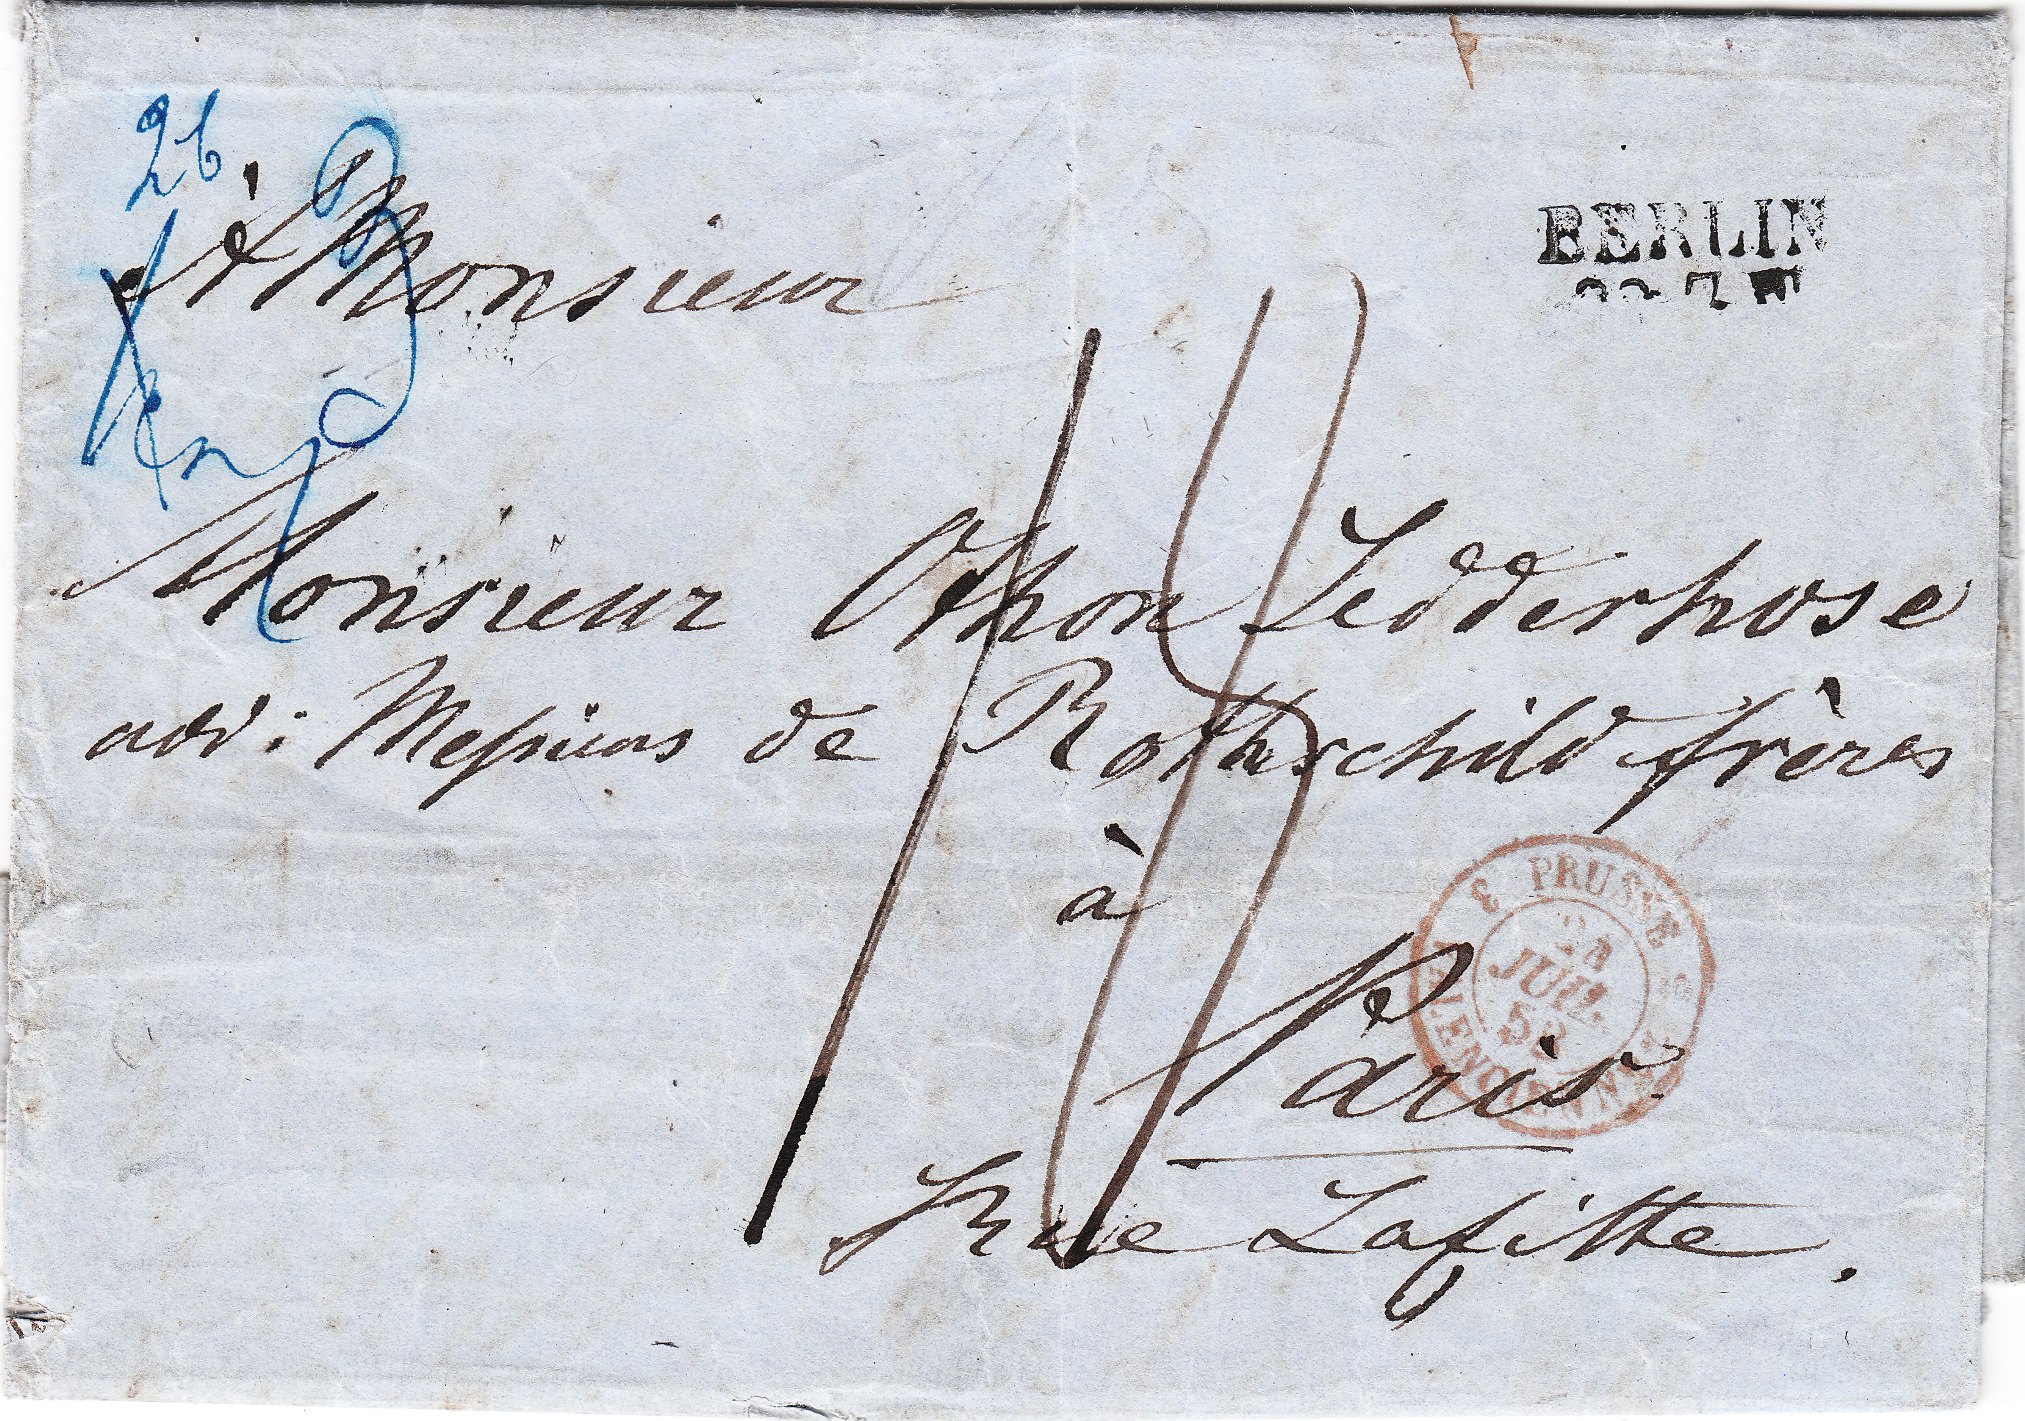 26
BERLIN
à Monsieur
Monsieur Othon Ledderhose
adr: Messieurs de Rothschild frères
à
Paris
Rue Lafitte.
18
PRUSSE
JUIL.
52
VALENCIENNES